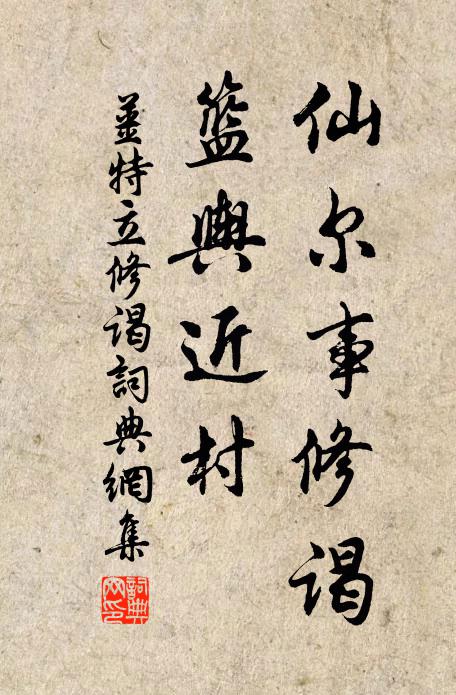 仙尔事修谒
篮舆近村
姜特立修谒词典網集
詞典
网印